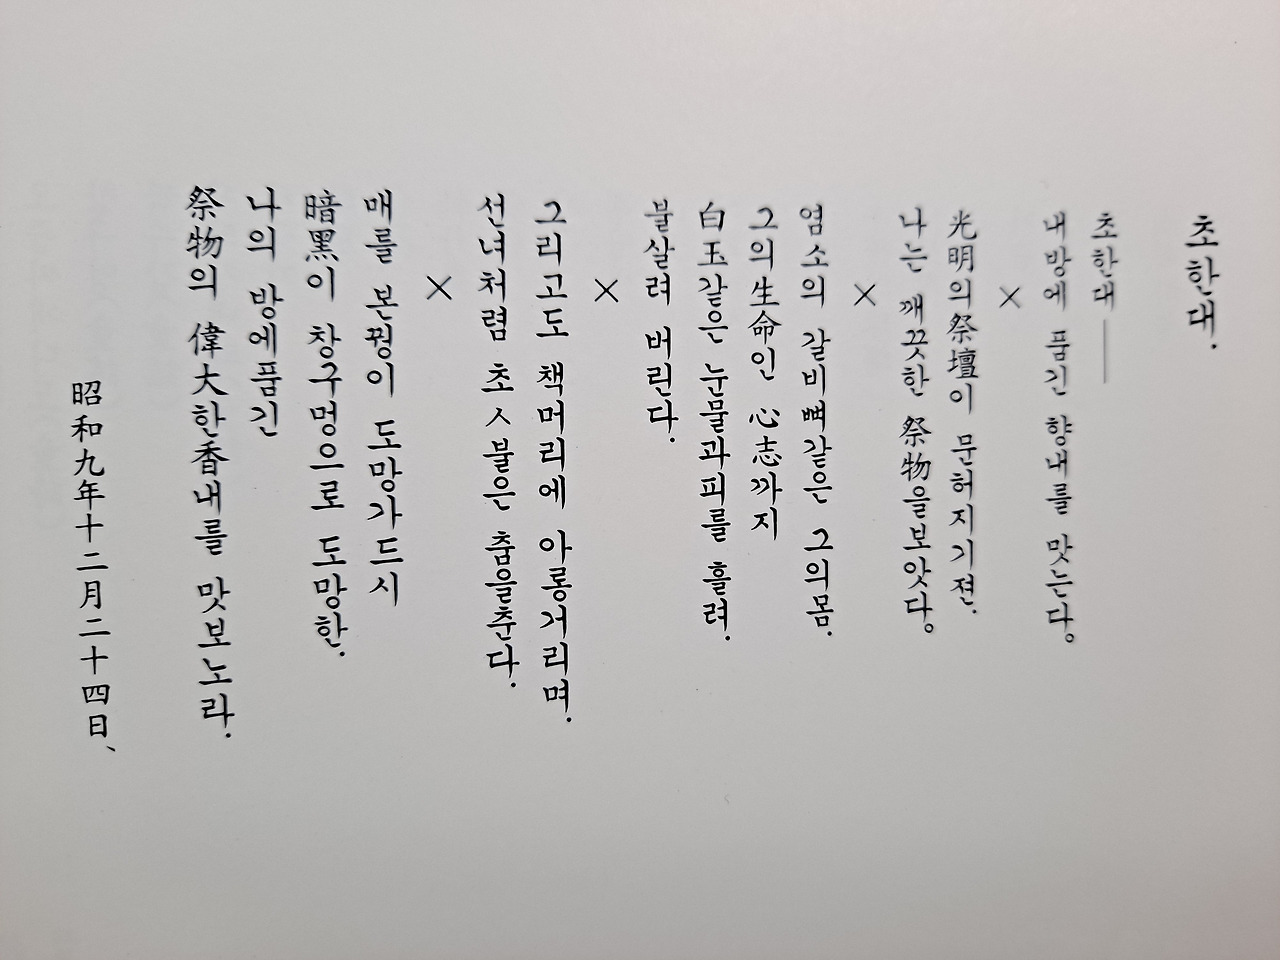 초한대.
초한대 ──
내방에 품긴 향내를 맛는다。
×
光明의祭壇이 문허지기젼.
나는 깨끗한 祭物을보앗다。
×
염소의 갈비뼈같은 그의몸.
그의生命인 心志까지
白玉같은 눈물과피를 흘려.
불살려 버린다.
×
그리고도 책머리에 아롱거리며.
선녀처렴 초ㅅ불은 춤을춘다.
×
매를 본꿩이 도망가드시
暗黑이 창구멍으로 도망한.
나의 방에품긴
祭物의 偉大한香내를 맛보노라.
昭和九年十二月二十四日、